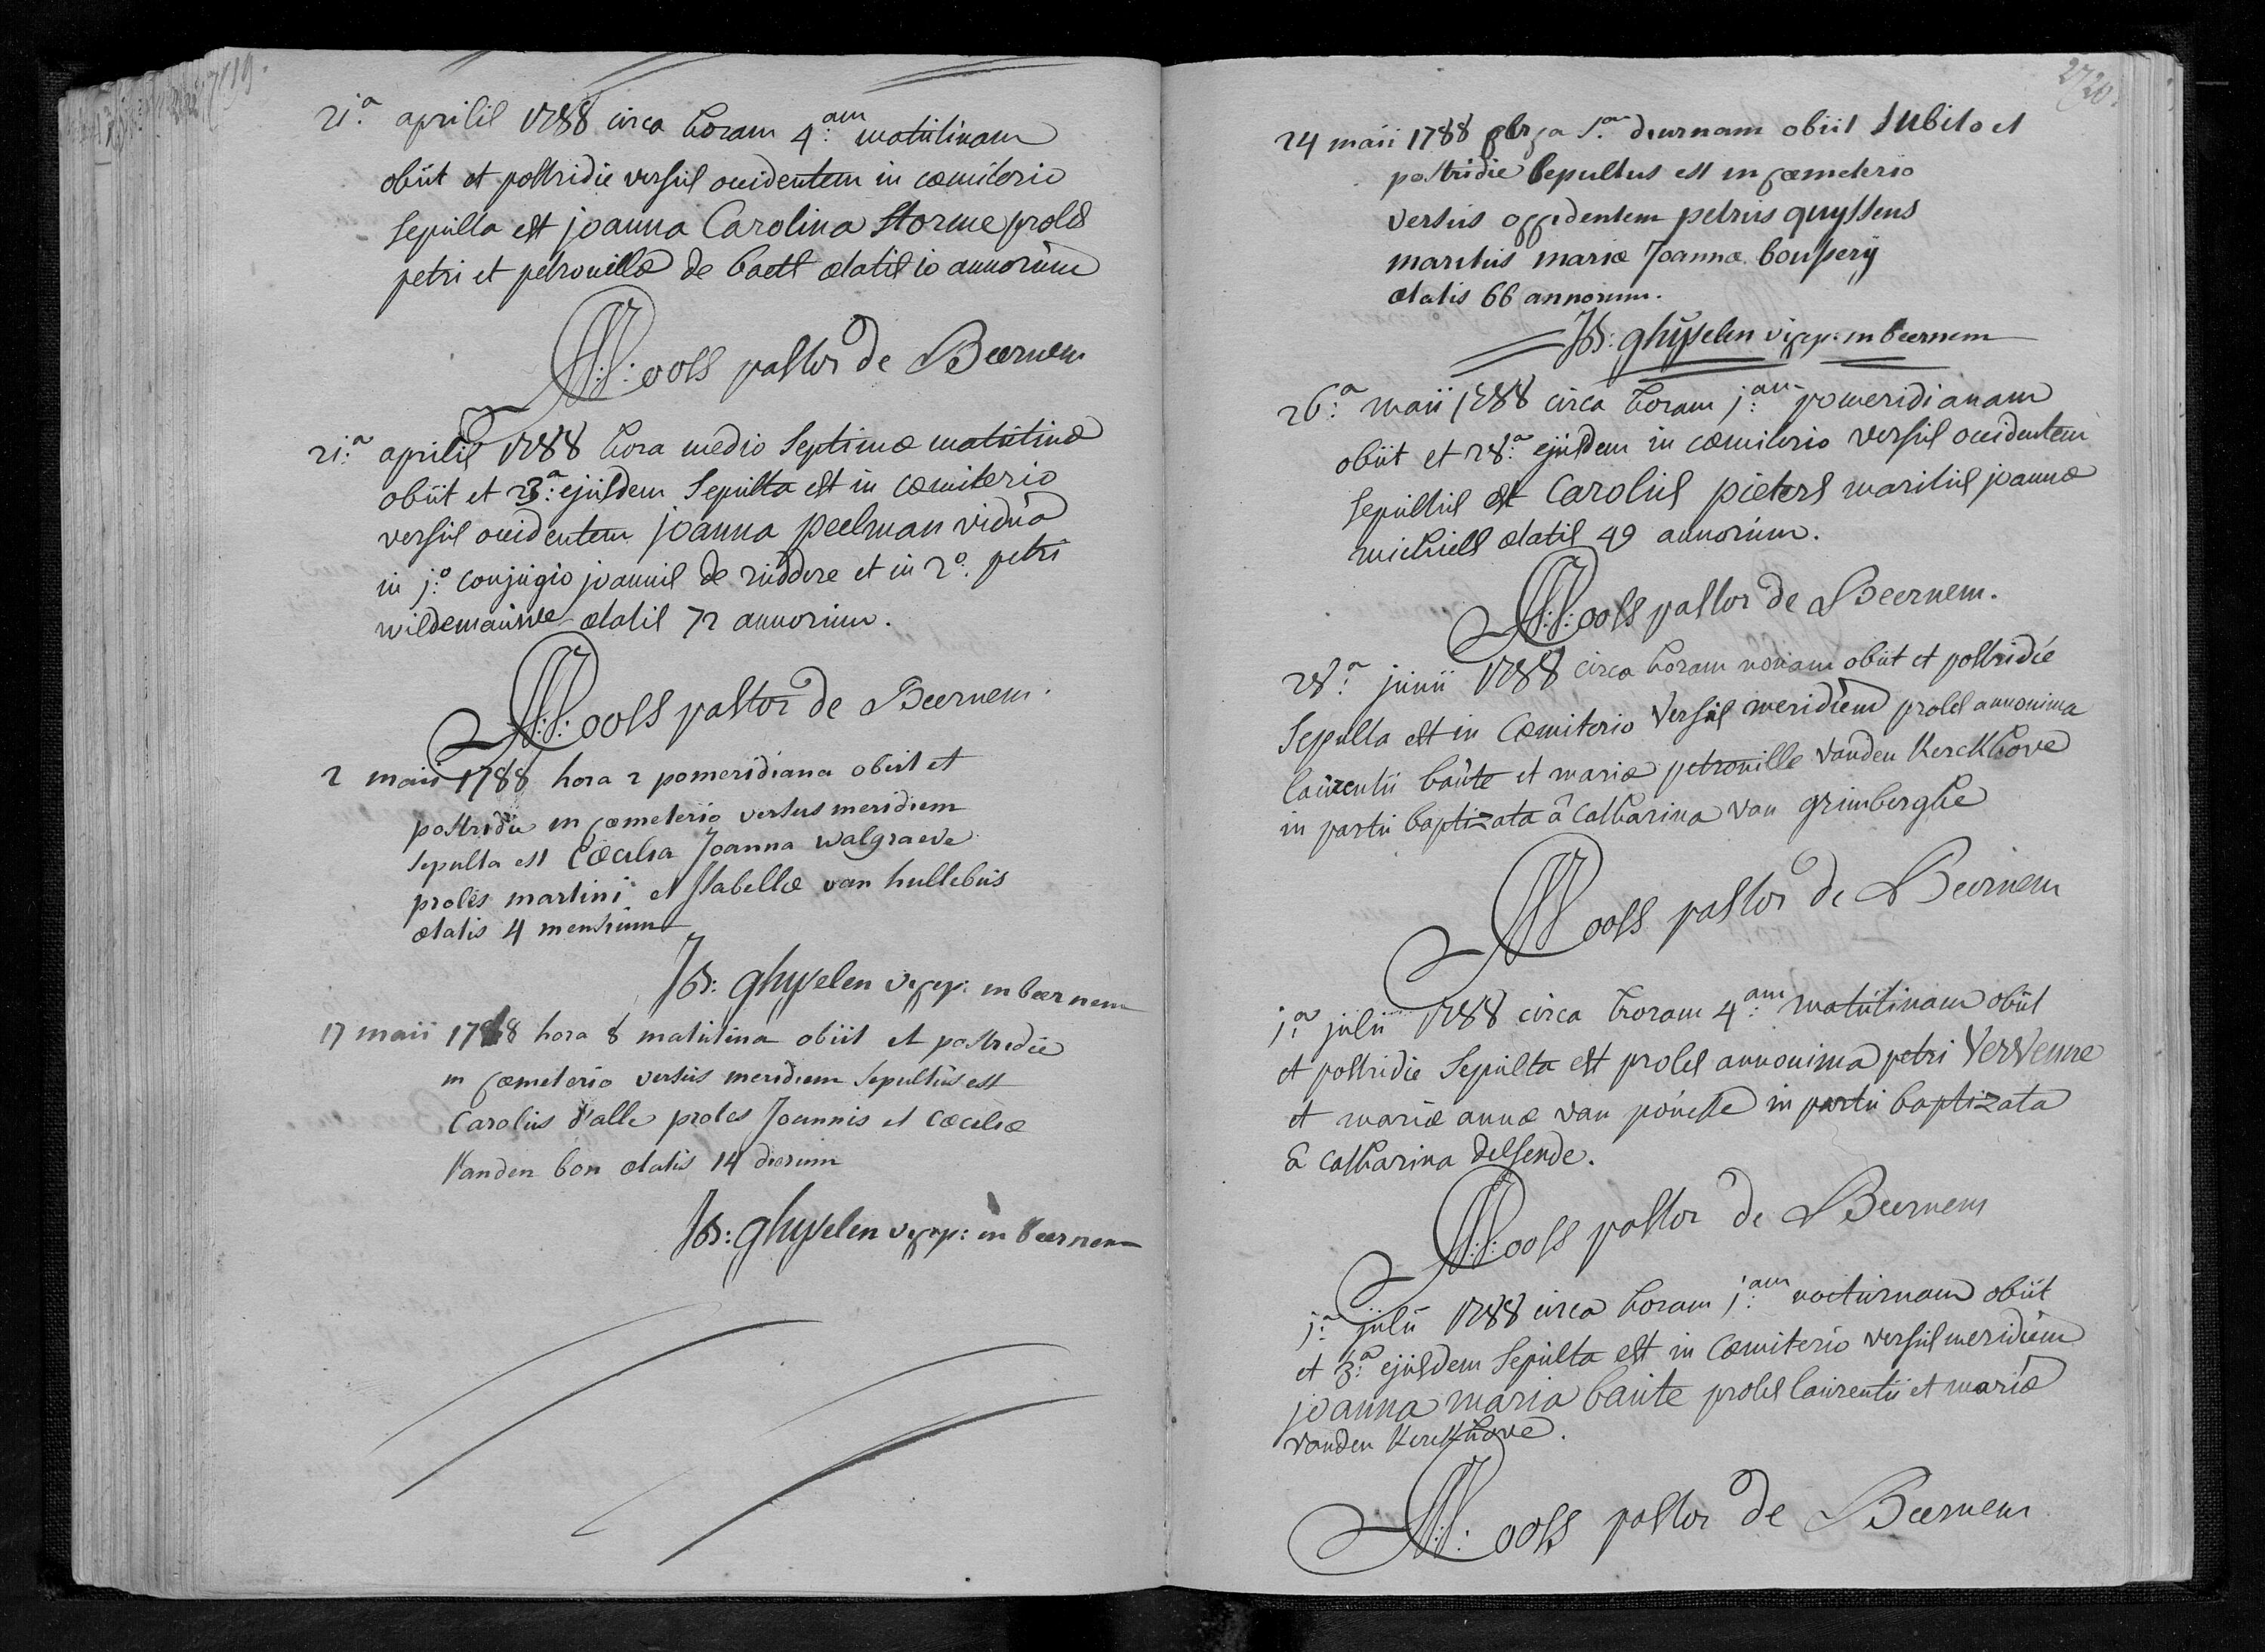 21.a aprilis 1788 circa horam 4.am matutinam
obiit et postridie versus occidentem in coemiterio
sepulta est joanna Carolina Storme proles
petri et petronillæ de baets ætatis 10 annorum
ools pastor de Beernem
21.a aprilis 1788 hora medio septimæ matutinæ
obiit et 23.a ejusdem sepulta est in coemiterio
versus occidentem joanna peelman vidua
in j.o conjugio joannis de ruddere et in 2.o petri
wildemauwe ætatis 72 annorum.
ools pastor de Beernem.
2 maii 1788 hora 2 pomeridiana obiit et
postridie in coemeterio versus meridiem
sepulta est Cæcilia Joanna walgraeve
proles martini et Isabellæ van hullebus
ætatis 4 mensium
JB: ghyselen vicep: in beernem
17 maii 1788 hora 8 matutina obiit et postridie
in coemeterio versus meridiem sepultus est
Carolus d'alle proles Joannis et Cæciliæ
Vanden bon ætatis 14 dierum
JB: ghyselen vicep: in beernem
2720.
24 maii 1788 diurnam obiit subito et
postridie sepultus est in coemeterio
versus occidentem petrus quyssens
maritus mariæ Joannæ bouserij
ætatis 66 annorum.
JB: ghyselen vicep: in beernem
26.a maii 1788 circa horam j.am pomeridianam
obiit et 28.a ejusdem in coemiterio versus occidentem
sepultus est Carolus pieters maritus joannæ
michiels ætatis 49 annorum.
ools pastor de Beernem.
28.a junii 1788 circa horam nonam obiit et postridie
sepulta est in Coemiterio versus meridiem proles annonima
laurentii baute et mariæ petronille vanden Kerckhove
in partu baptizata â Catharina van grimberghe
ools pastor de Beernem
j.a julii 1788 circa horam 4.am matutinam obiit
et postridie sepulta est proles annonima petri Vervenne
et mariæ annæ van poucke in partu baptizata
â Catharina delsende.
ools pastor de Beernem
j.a julii 1788 circa horam j.am nocturnam obiit
et 3.a ejusdem sepulta est in Coemiterio versus meridiem
joanna maria baute proles laurentii et mariæ
vanden Kerckhove.
ools pastor de Beernem